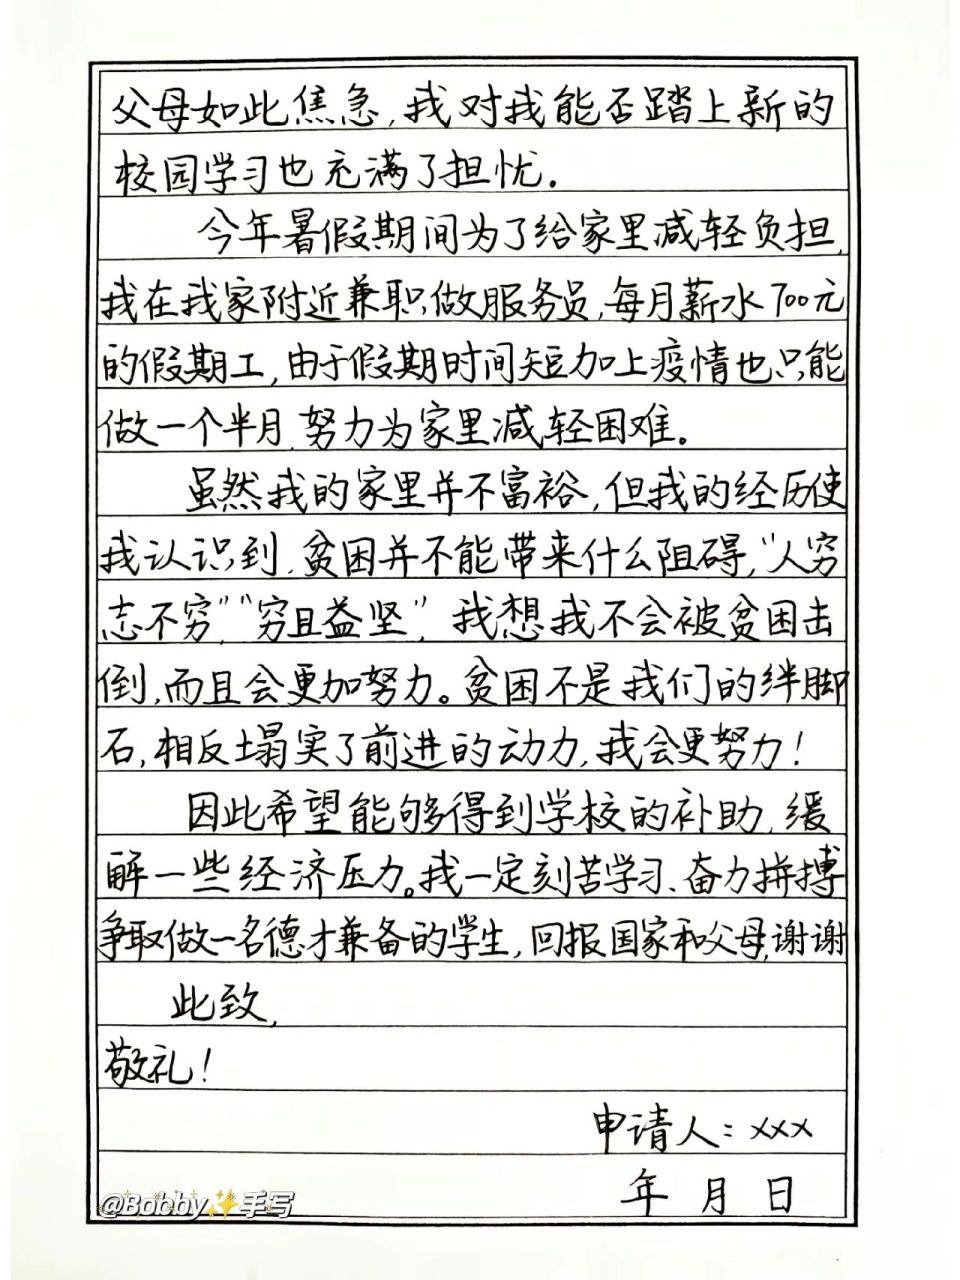 父母如此焦急,我对我能否踏上新的
校园学习也充满了担忧.
今年暑假期间为了给家里减轻负担,
我在我家附近兼职做服务员,每月薪水700元
的假期工,由于假期时间短加上疫情也只能
做一个半月,努力为家里减轻困难。
虽然我的家里并不富裕,但我的经历使
我认识到,贫困并不能带来什么阻碍,“人穷
志不穷”“穷且益坚”,我想我不会被贫困击
倒,而且会更加努力。贫困不是我们的绊脚
石,相反塌实了前进的动力,我会更努力!
因此希望能够得到学校的补助,缓
解一些经济压力。我一定刻苦学习、奋力拼搏
争取做一名德才兼备的学生,回报国家和父母,谢谢
此致,
敬礼!
申请人:xxx
年 月 日
@Bobby✨手写